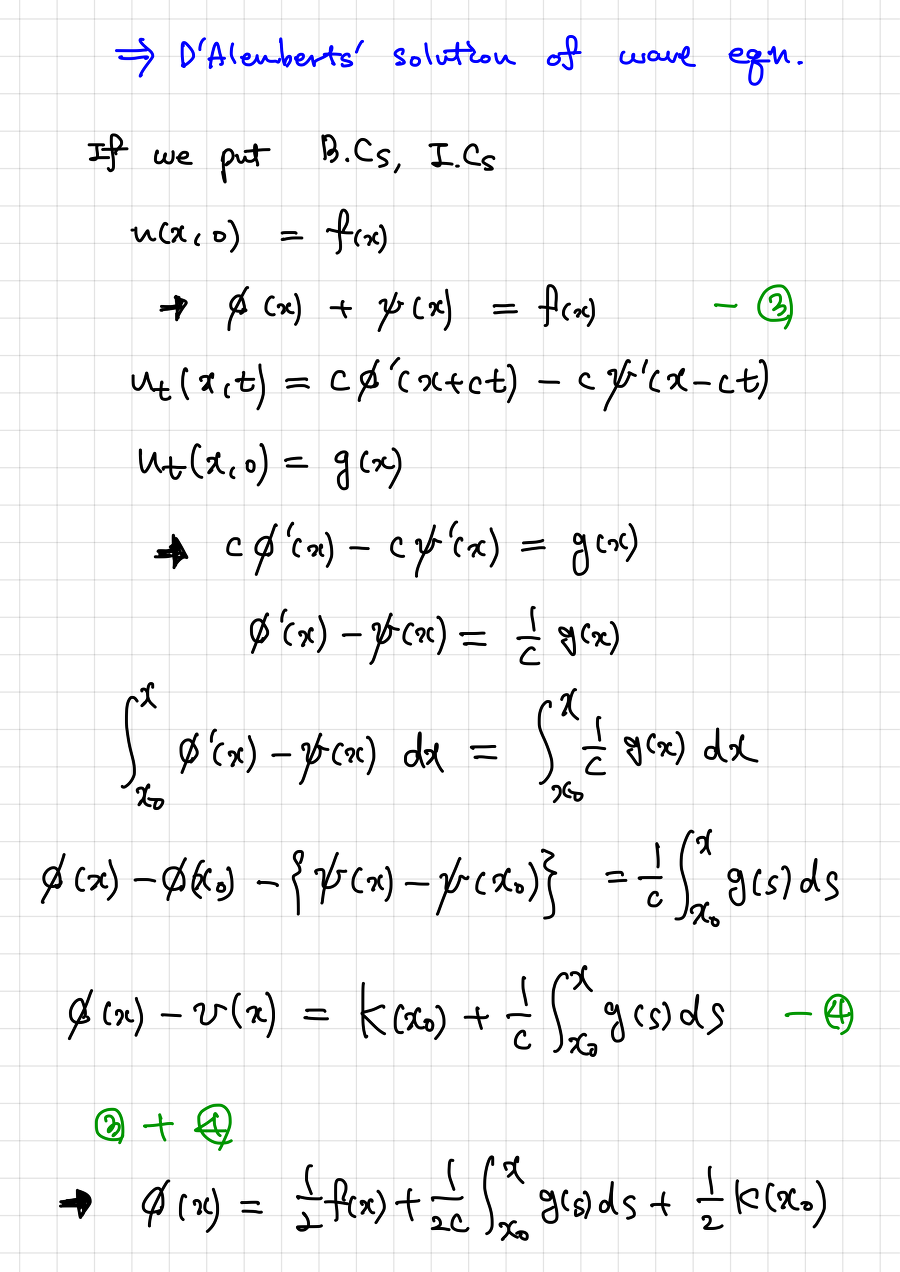 ⇒ D'Alenberts' solution of wave eqn.
If we put B.Cs, I.Cs
u(x,0) = f(x)
→ ϕ(x) + ψ(x) = f(x) - ③
u_t(x,t) = cϕ'(x+ct) - cψ'(x-ct)
u_t(x,0) = g(x)
→ cϕ'(x) - cψ'(x) = g(x)
ϕ'(x) - ψ(x) = 1/c g(x)
∫_{x₀}^{x} ϕ'(x) - ψ(x) dx = ∫_{x₀}^{x} 1/c g(x) dx
ϕ(x) - ϕ(x₀) - {ψ(x) - ψ(x₀)} = 1/c ∫_{x₀}^{x} g(s) ds
ϕ(x) - v(x) = k(x₀) + 1/c ∫_{x₀}^{x} g(s) ds - ④
③ + ④
→ ϕ(x) = 1/2 f(x) + 1/2c ∫_{x₀}^{x} g(s) ds + 1/2 k(x₀)